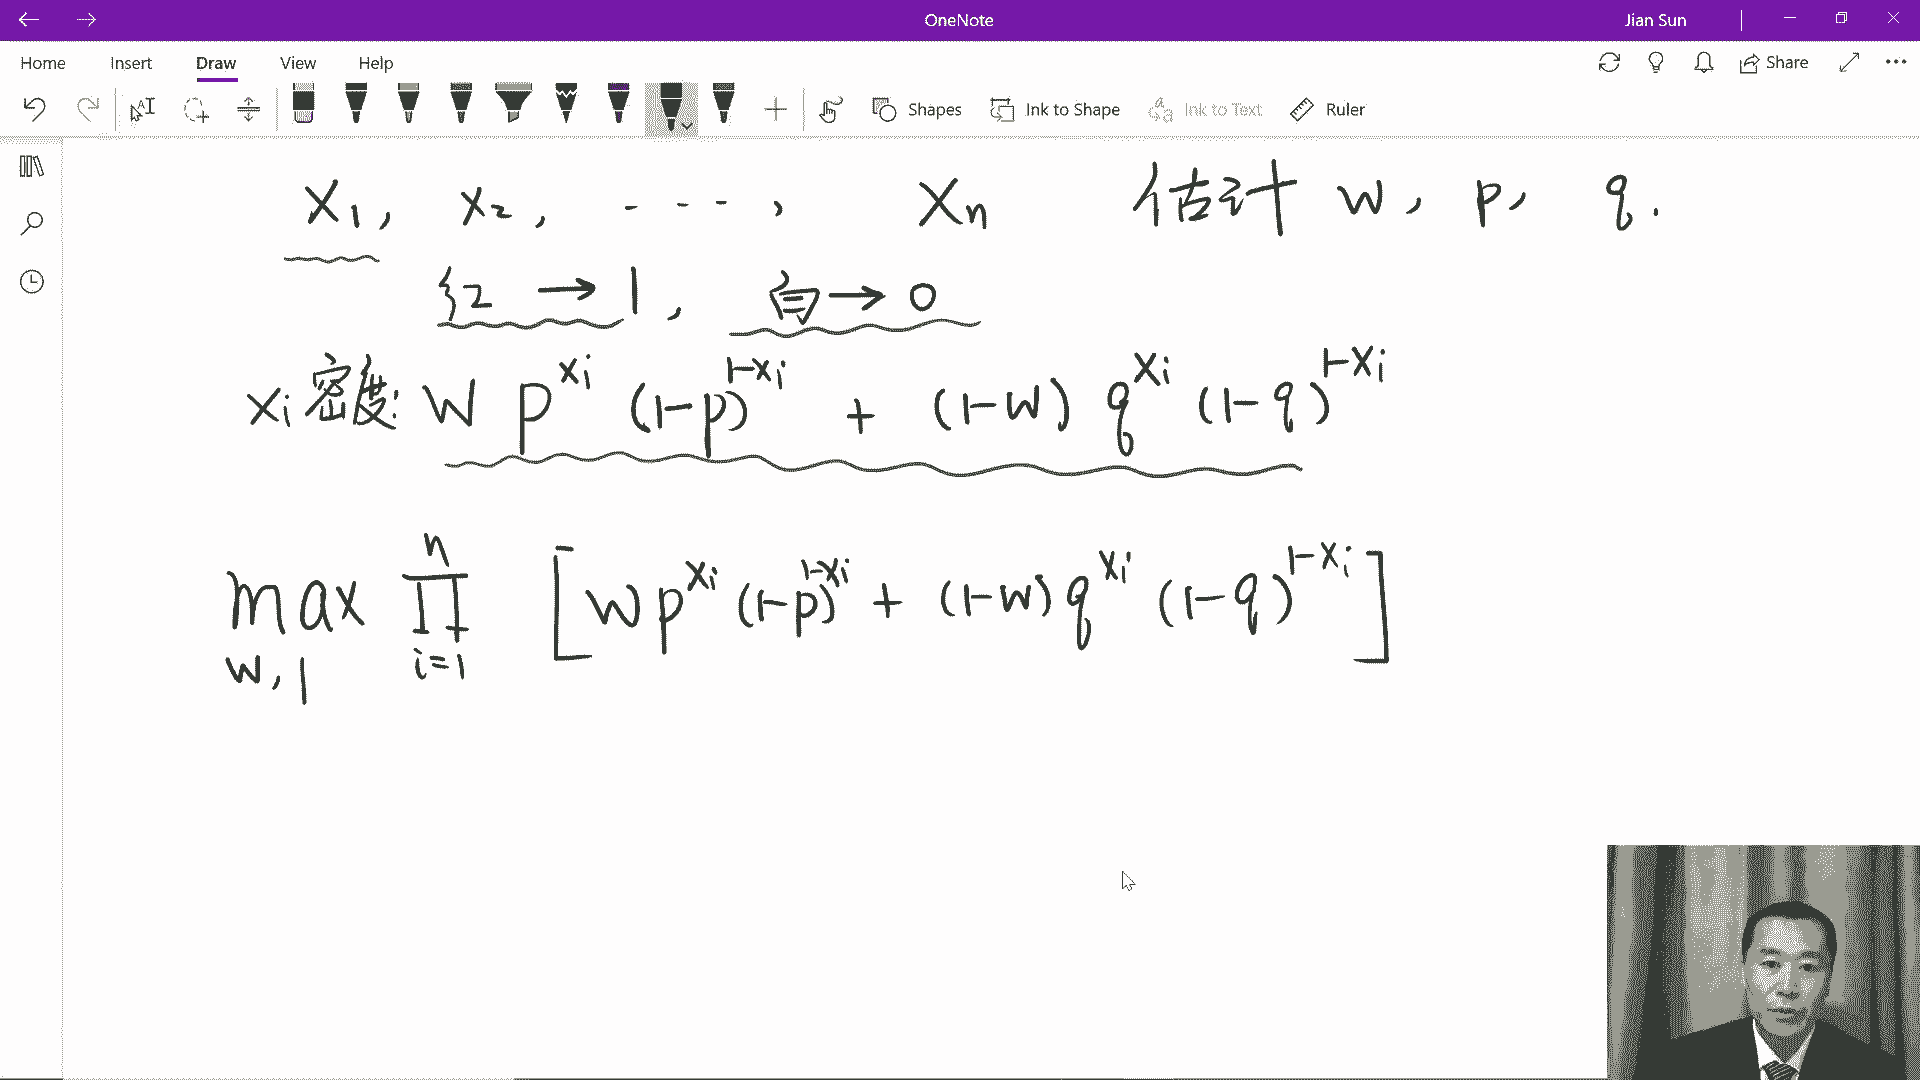 OneNote Jian Sun
Home Insert Draw View Help Share
Shapes Ink to Shape Ink to Text Ruler
x₁, x₂, ····, xₙ 估计 w, p, q.
红 → 1, 白 → 0
xᵢ 密度: w p^{xᵢ} (1-p)^{1-xᵢ} + (1-w) q^{xᵢ} (1-q)^{1-xᵢ}
max_{w, p} ∏_{i=1}^{n} [w p^{xᵢ} (1-p)^{1-xᵢ} + (1-w) q^{xᵢ} (1-q)^{1-xᵢ}]